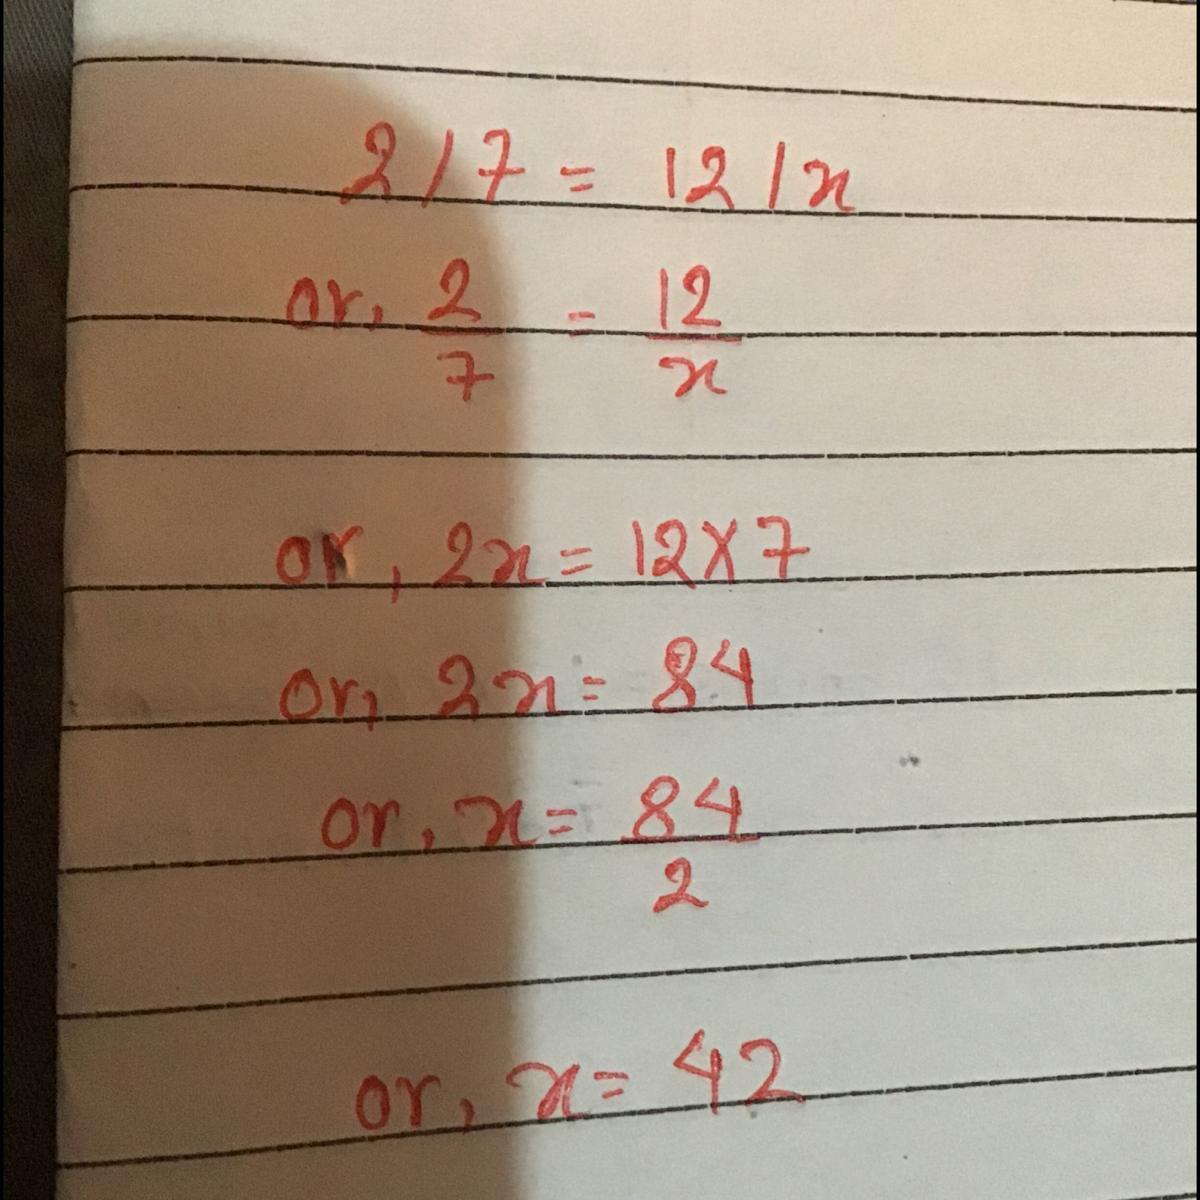 2/7 = 12/x
or, 2/7 = 12/x
or, 2x = 12×7
or, 2x = 84
or, x = 84/2
or, x = 42